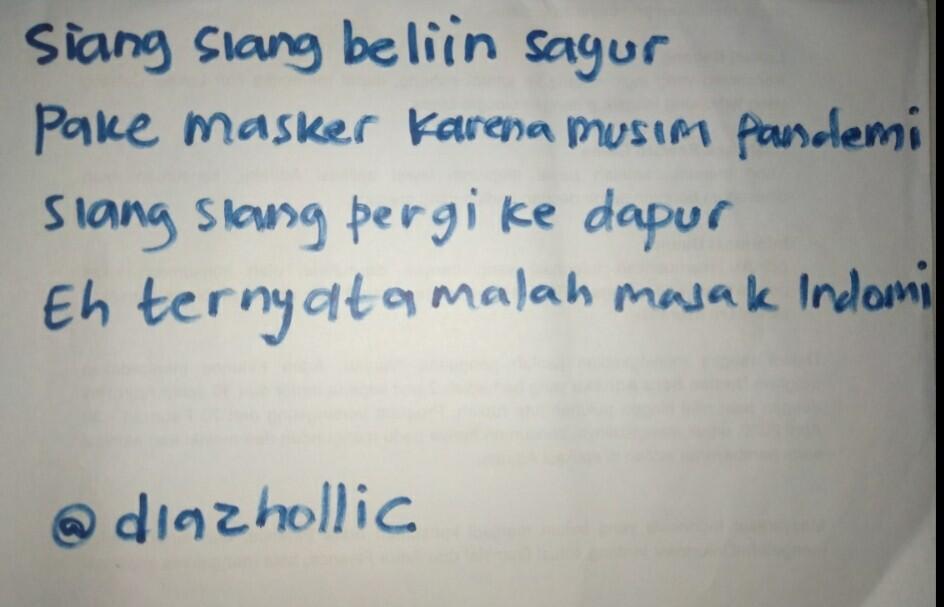 Siang siang beliin sayur
Pake masker karena musim pandemi
Siang siang pergi ke dapur
Eh ternyata malah masak Indomi
@diazhollic